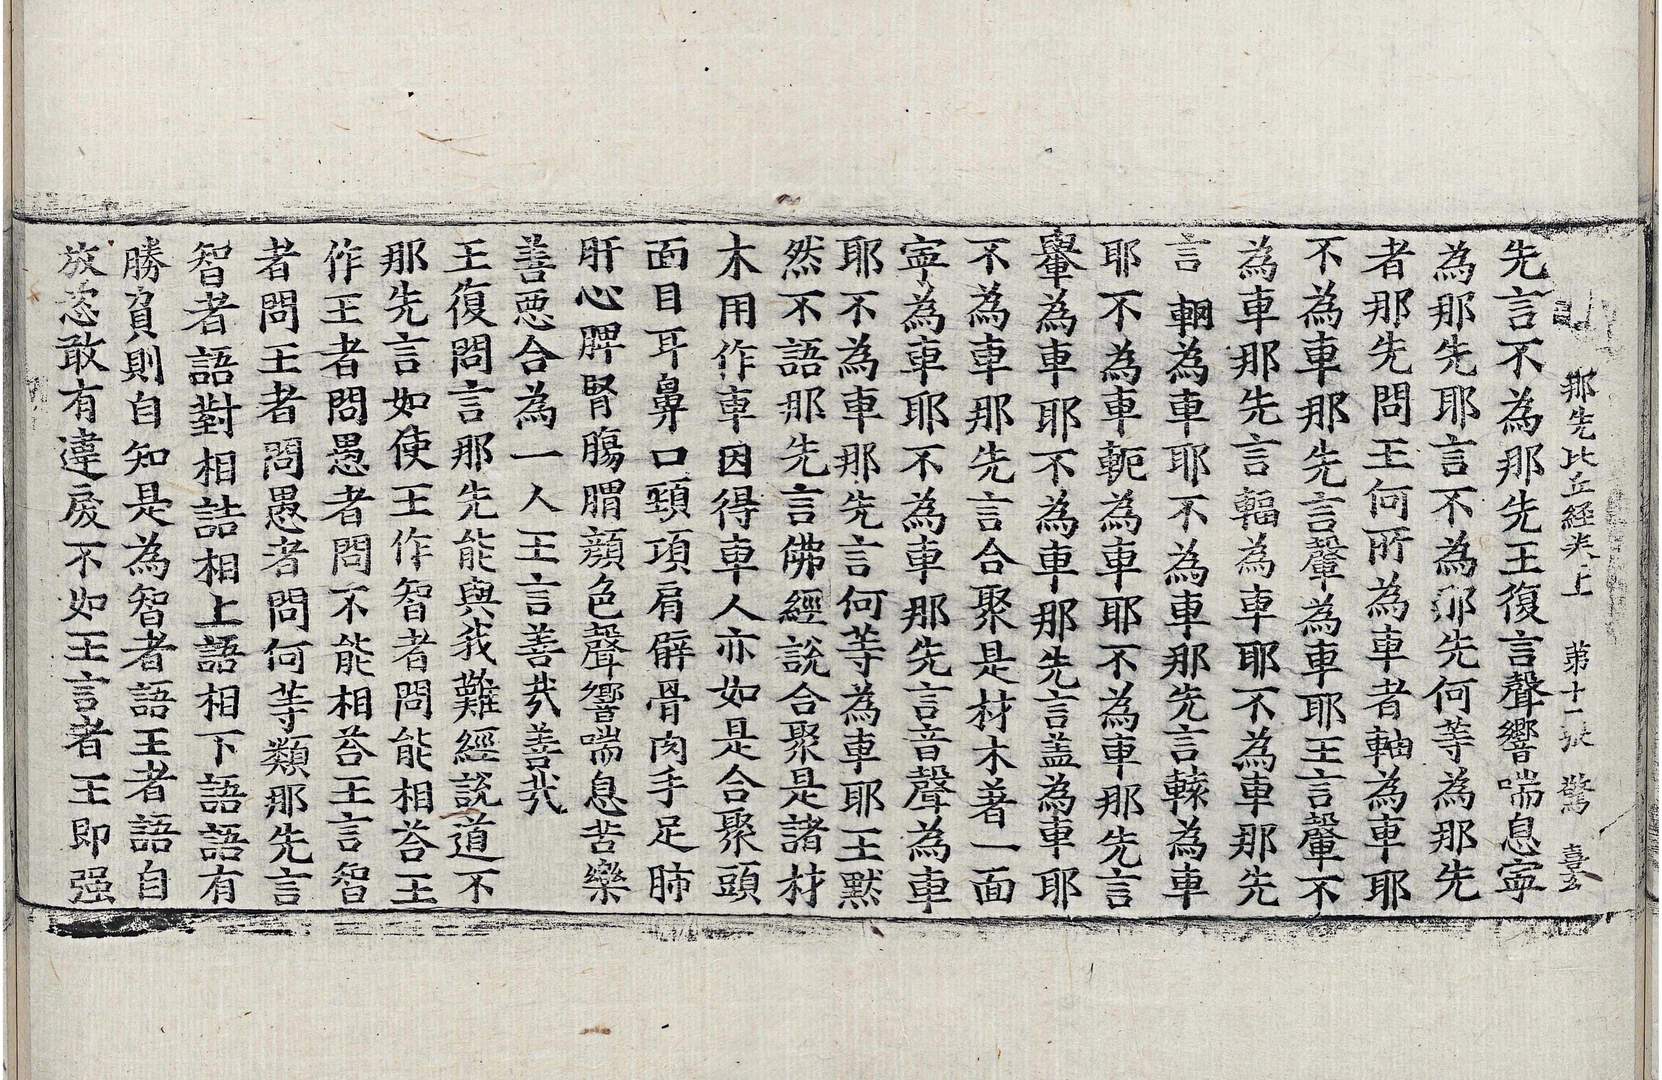 那先比丘經卷上 第十一張 驚 喜玄
先言不為那先王復言聲響喘息寧
為那先耶言不為那先何等為那先
者那先問王何所為車者軸為車耶
不為車那先言轝為車耶王言轝不
為車那先言輻為車耶不為車那先
言輞為車耶不為車那先言轅為車
耶不為車軛為車耶不為車那先言
轝為車耶不為車那先言盖為車耶
不為車那先言合聚是材木著一面
寧為車耶不為車那先言音聲為車
耶不為車那先言何等為車耶王默
然不語那先言佛經說合聚是諸材
木用作車因得車人亦如是合聚頭
面目耳鼻口頸項肩臂骨肉手足肺
肝心脾腎腸胃顏色聲響喘息苦樂
善惡合為一人王言善哉善哉
王復問言那先能與我難經說道不
那先言如使王作智者問能相荅王
作王者問愚者問不能相荅王言智
者問王者問愚者問何等類那先言
智者語對相詰相上語相下語語有
勝負則自知是為智者語王者語自
放恣敢有違戾不如王言者王即强